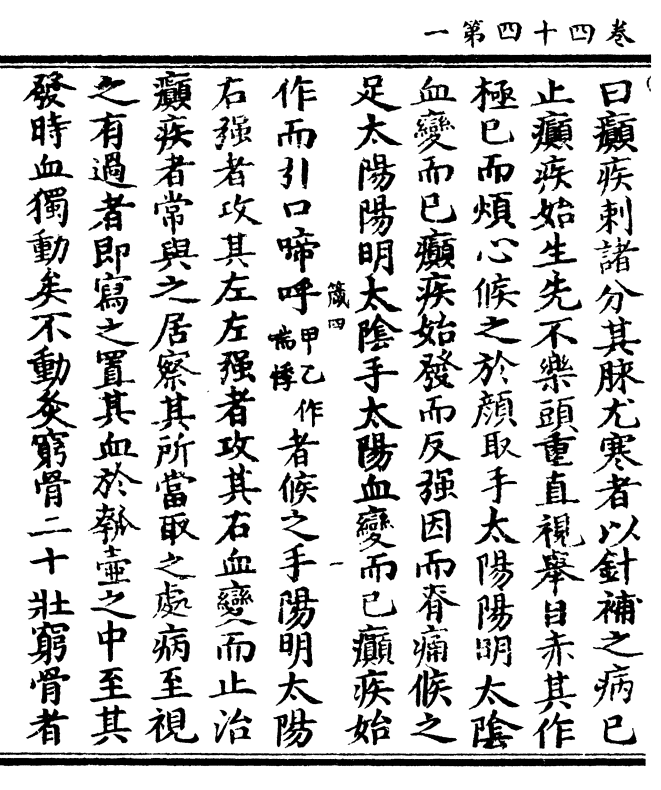 卷四十四第一
曰癲疾刺諸分其脉尤寒者以針補之病已
止癲疾始生先不樂頭重直視舉目赤其作
極已而煩心候之於顔取手太陽陽明太陰
血變而已癲疾始發而反强因而脊痛候之
足太陽陽明太陰手太陽血變而已癲疾始
作而引口啼呼甲乙作喘悸者候之手陽明太陽
右强者攻其左左强者攻其右血變而止治
癲疾者常與之居察其所當取之處病至視
之有過者即寫之置其血於瓠壺之中至其
發時血獨動矣不動灸窮骨二十壯窮骨者
箴四